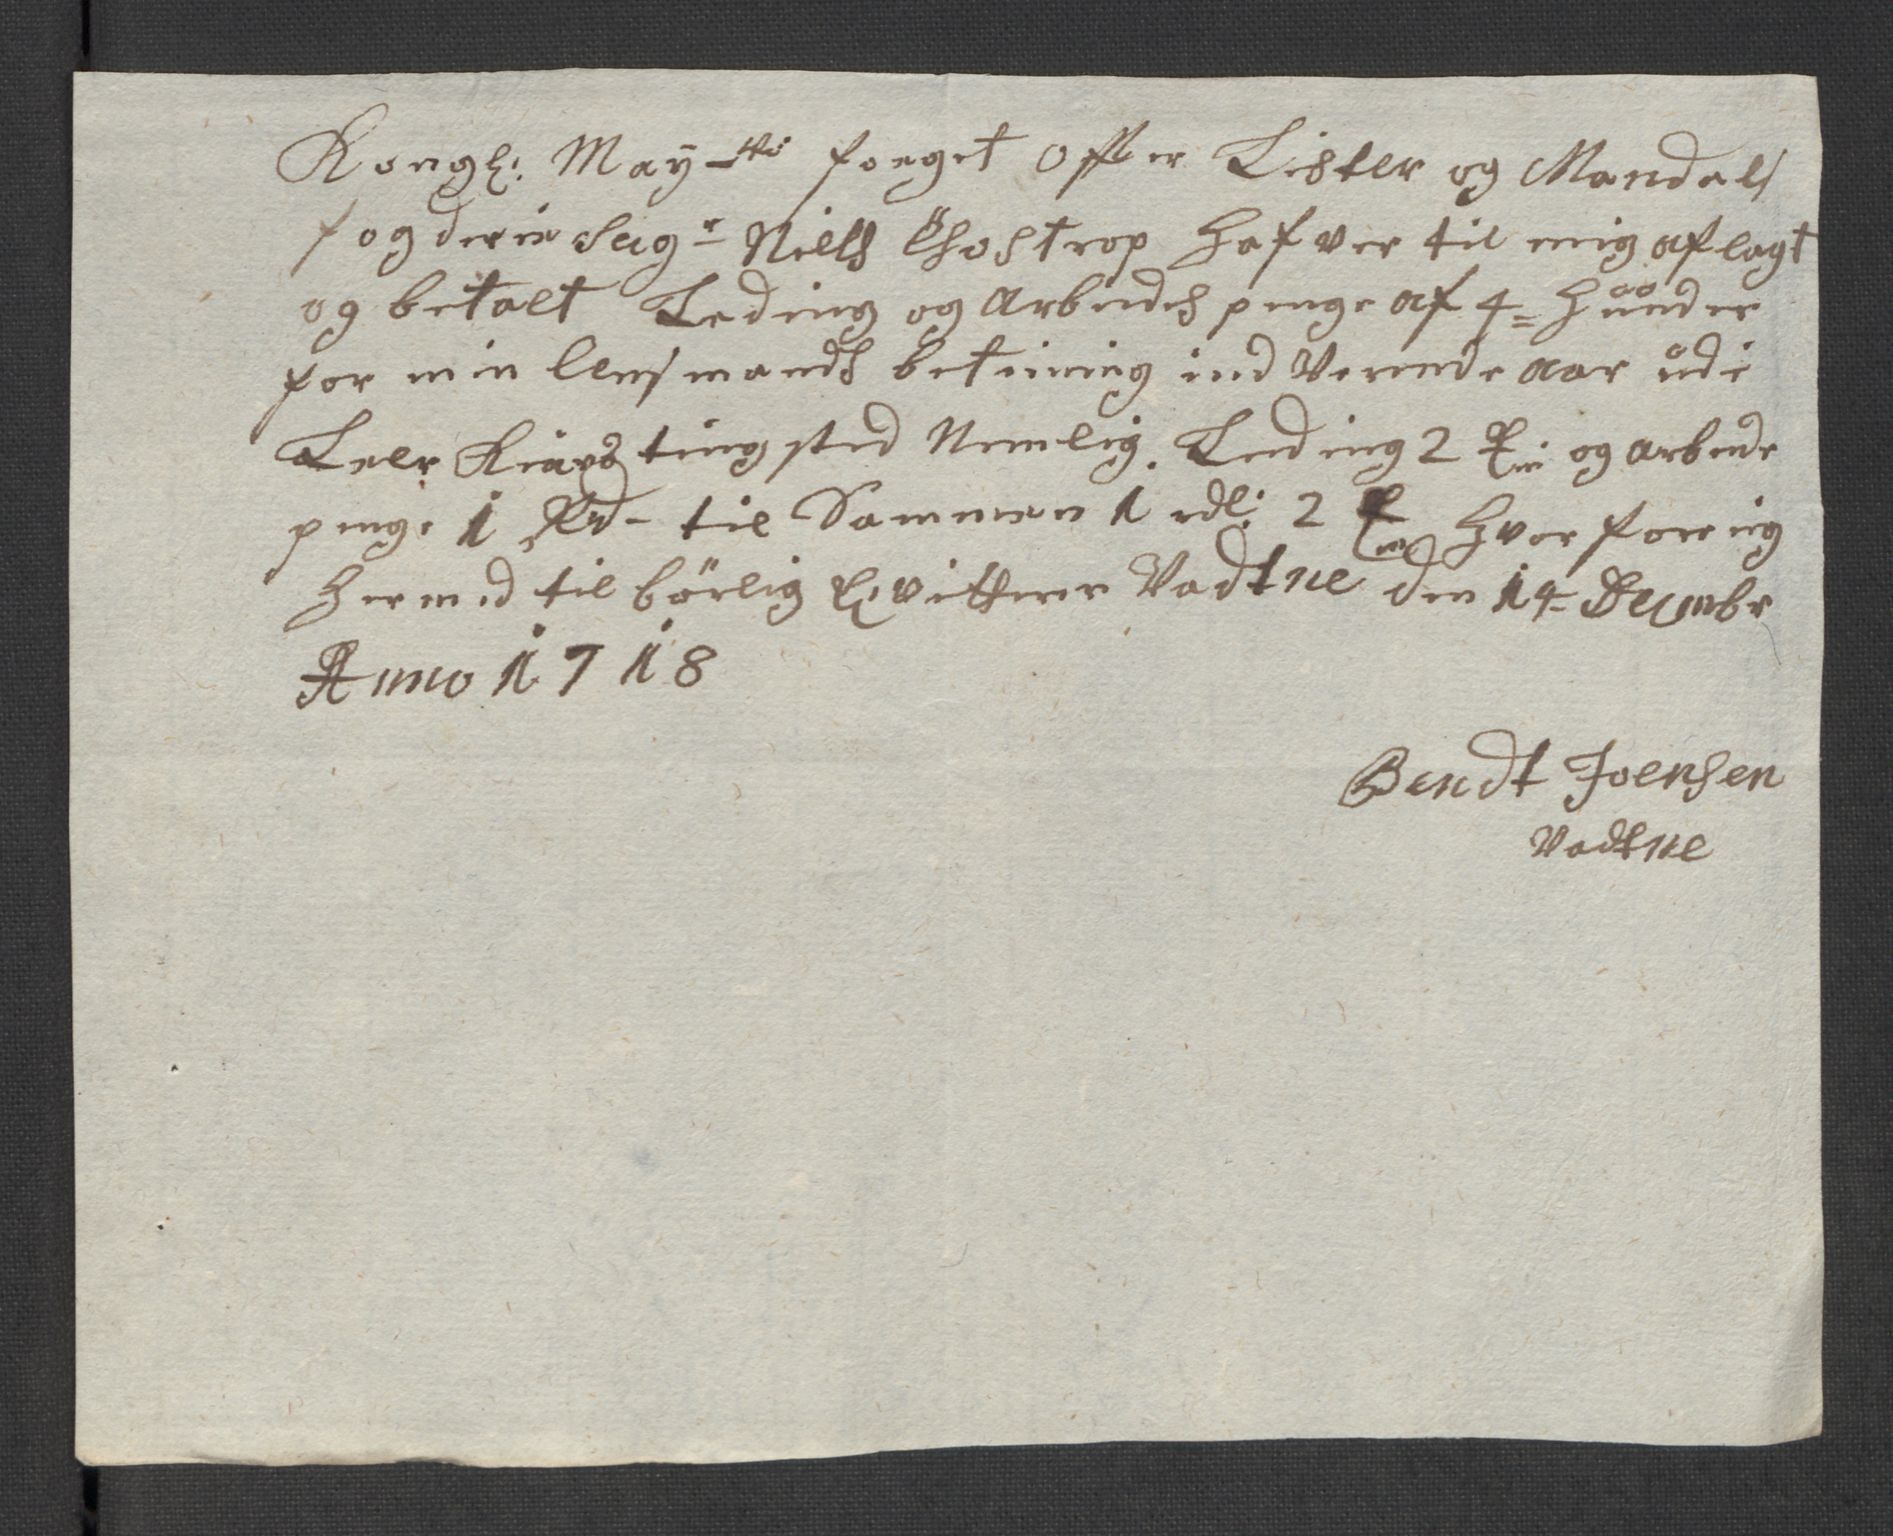 Kongl: May-tts foeget offver Lister og Mandals
fogderie Seigr Niels Thostrop Hafver til mig aflagt
og betalt Leding og Arbeids penge af 4= Hûnder
for min lensmands betining ind Verende aar ûdi
Lelr Kiærs tingsted Nemlig. Leding 2 og arbeide
penge 1 Rd- til Sammen 1 rdl: 2 Hvor fore ieg
Hermed til børlig qvitherer Vadtne den 14- Decembr
Anno 1718
Bendt Joensen
Vadtne